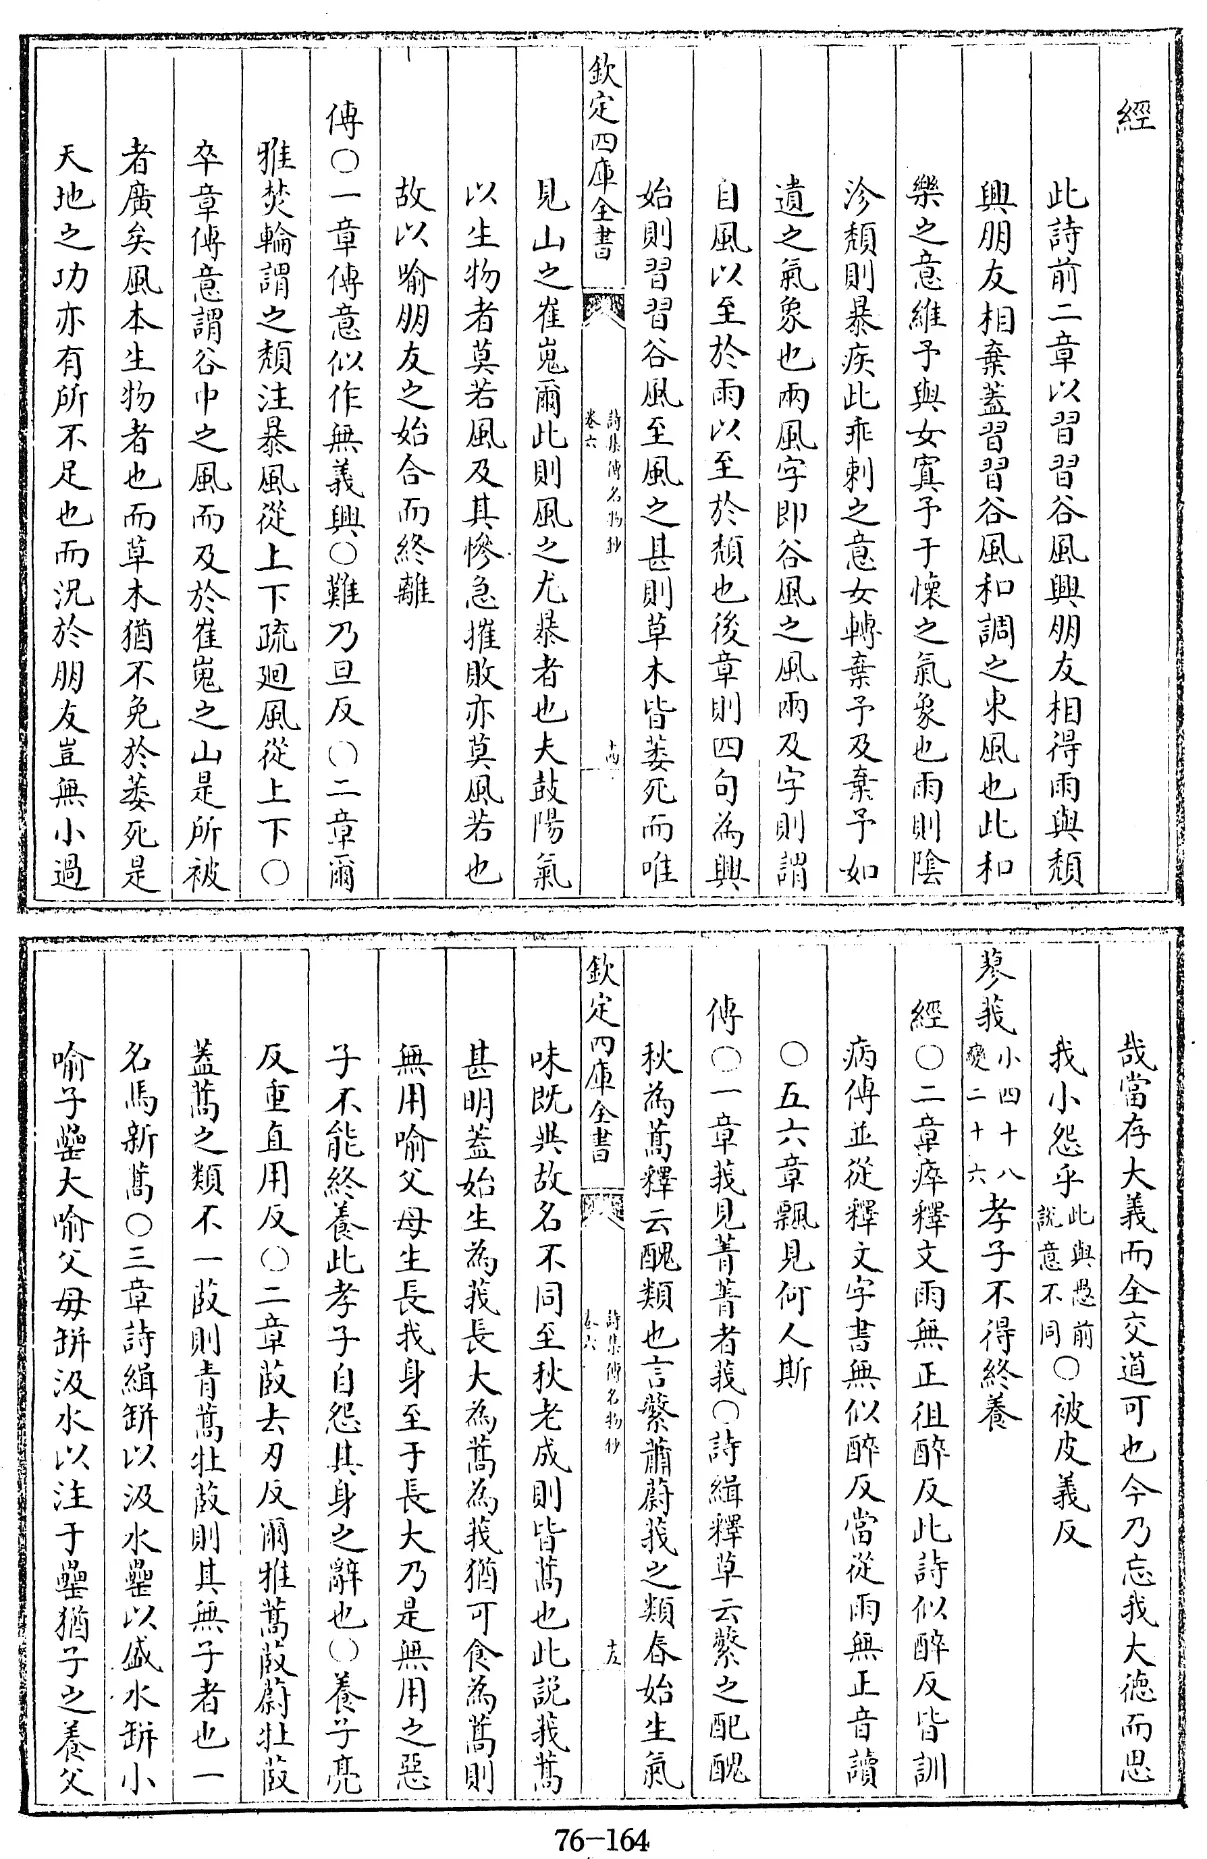 經
此詩前二章以習習谷風興朋友相得雨與頽
興朋友相棄葢習習谷風和調之東風也此和
樂之意維予與女寘予于懷之氣象也雨則陰
沴頽則暴疾此乖剌之意女轉棄予及棄予如
遺之氣象也兩風字即谷風之風兩及字則謂
自風以至於雨以至於頽也後章則四句為興
始則習習谷風至風之甚則草木皆萎死而唯
欽定四庫全書
詩集傳名物鈔
卷六
十四
見山之崔嵬爾此則風之尤暴者也夫鼓陽氣
以生物者莫若風及其慘急摧敗亦莫風若也
故以喻朋友之始合而終離
傳○一章傳意似作無義興○難乃旦反○二章爾
雅焚輪謂之頽注暴風從上下疏廻風從上下○
卒章傳意謂谷中之風而及於崔嵬之山是所被
者廣矣風本生物者也而草木猶不免於萎死是
天地之功亦有所不足也而況於朋友豈無小過
哉當存大義而全交道可也今乃忘我大德而思
我小怨乎此與愚前說意不同○被皮義反
蓼莪小四十八變二十六孝子不得終養
經○二章瘁釋文雨無正徂醉反此詩似醉反皆訓
病傳並從釋文字書無似醉反當從雨無正音讀
○五六章飄見何人斯
傳○一章莪見菁菁者莪○詩緝釋草云蘩之配醜
秋為蒿釋云醜類也言蘩蕭蔚莪之類春始生氣
欽定四庫全書
詩集傳名物鈔
卷六
十五
味既異故名不同至秋老成則皆蒿也此説莪蒿
甚明葢始生為莪長大為蒿為莪猶可食為蒿則
無用喻父母生長我身至于長大乃是無用之惡
子不能終養此孝子自怨其身之辭也○養予亮
反重直用反○二章菣去刃反爾雅蒿菣蔚牡菣
葢蒿之類不一菣則青蒿牡菣則其無子者也一
名馬新蒿○三章詩緝缾以汲水罍以盛水缾小
喻子罍大喻父母缾汲水以注于罍猶子之養父
76-164